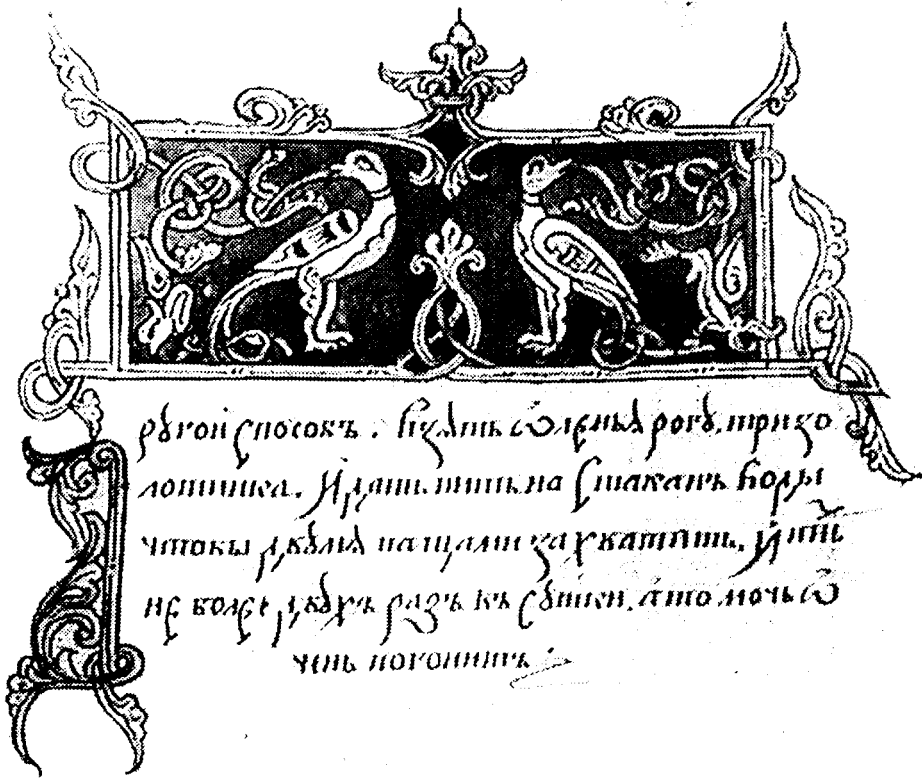 Дрꙋгой способъ. Взѧть ѡленьѧ рогꙋ, три зо
лотника. И дать пить на стаканъ воды
чтобы двꙋмѧ захватить, и пить
не болѣе двꙋхъ разъ въ сꙋтки, а то мочь ѡ
чень погонитъ.